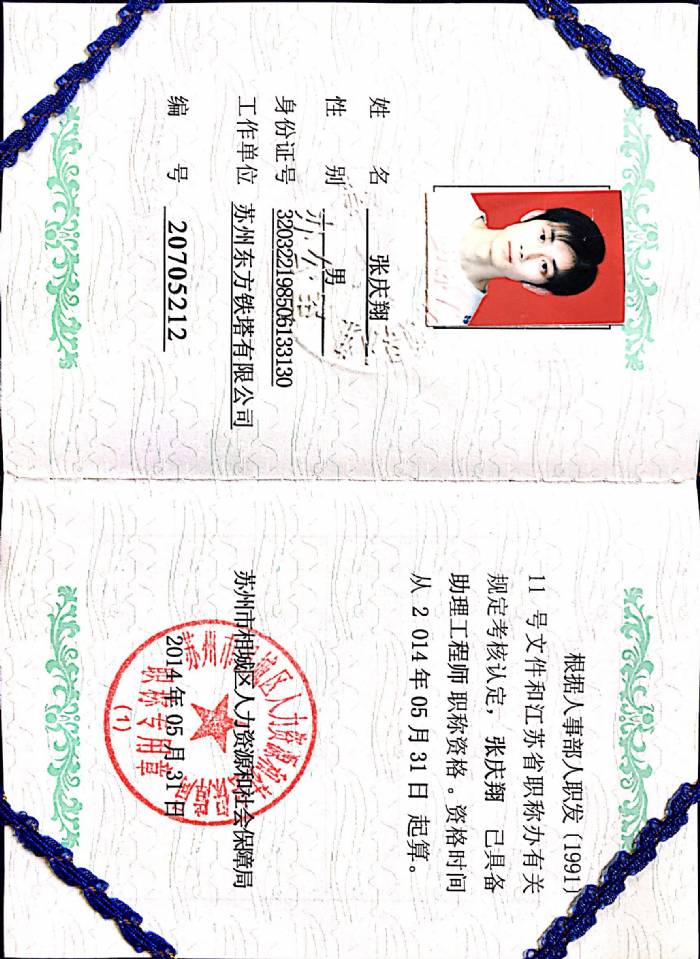 姓 名 张庆翔
性 别 男
身份证号 320322198506133130
工作单位 苏州东方铁塔有限公司
编 号 20705212
办公室
根据人事部人职发(1991)
11 号文件和江苏省职称办有关
规定考核认定，张庆翔 已具备
助理工程师 职称资格。资格时间
从 2 014 年 05 月 31 日 起算。
苏州市相城区人力资源和社会保障局
2014 年 05 月 31 日
职称专用章
(1)